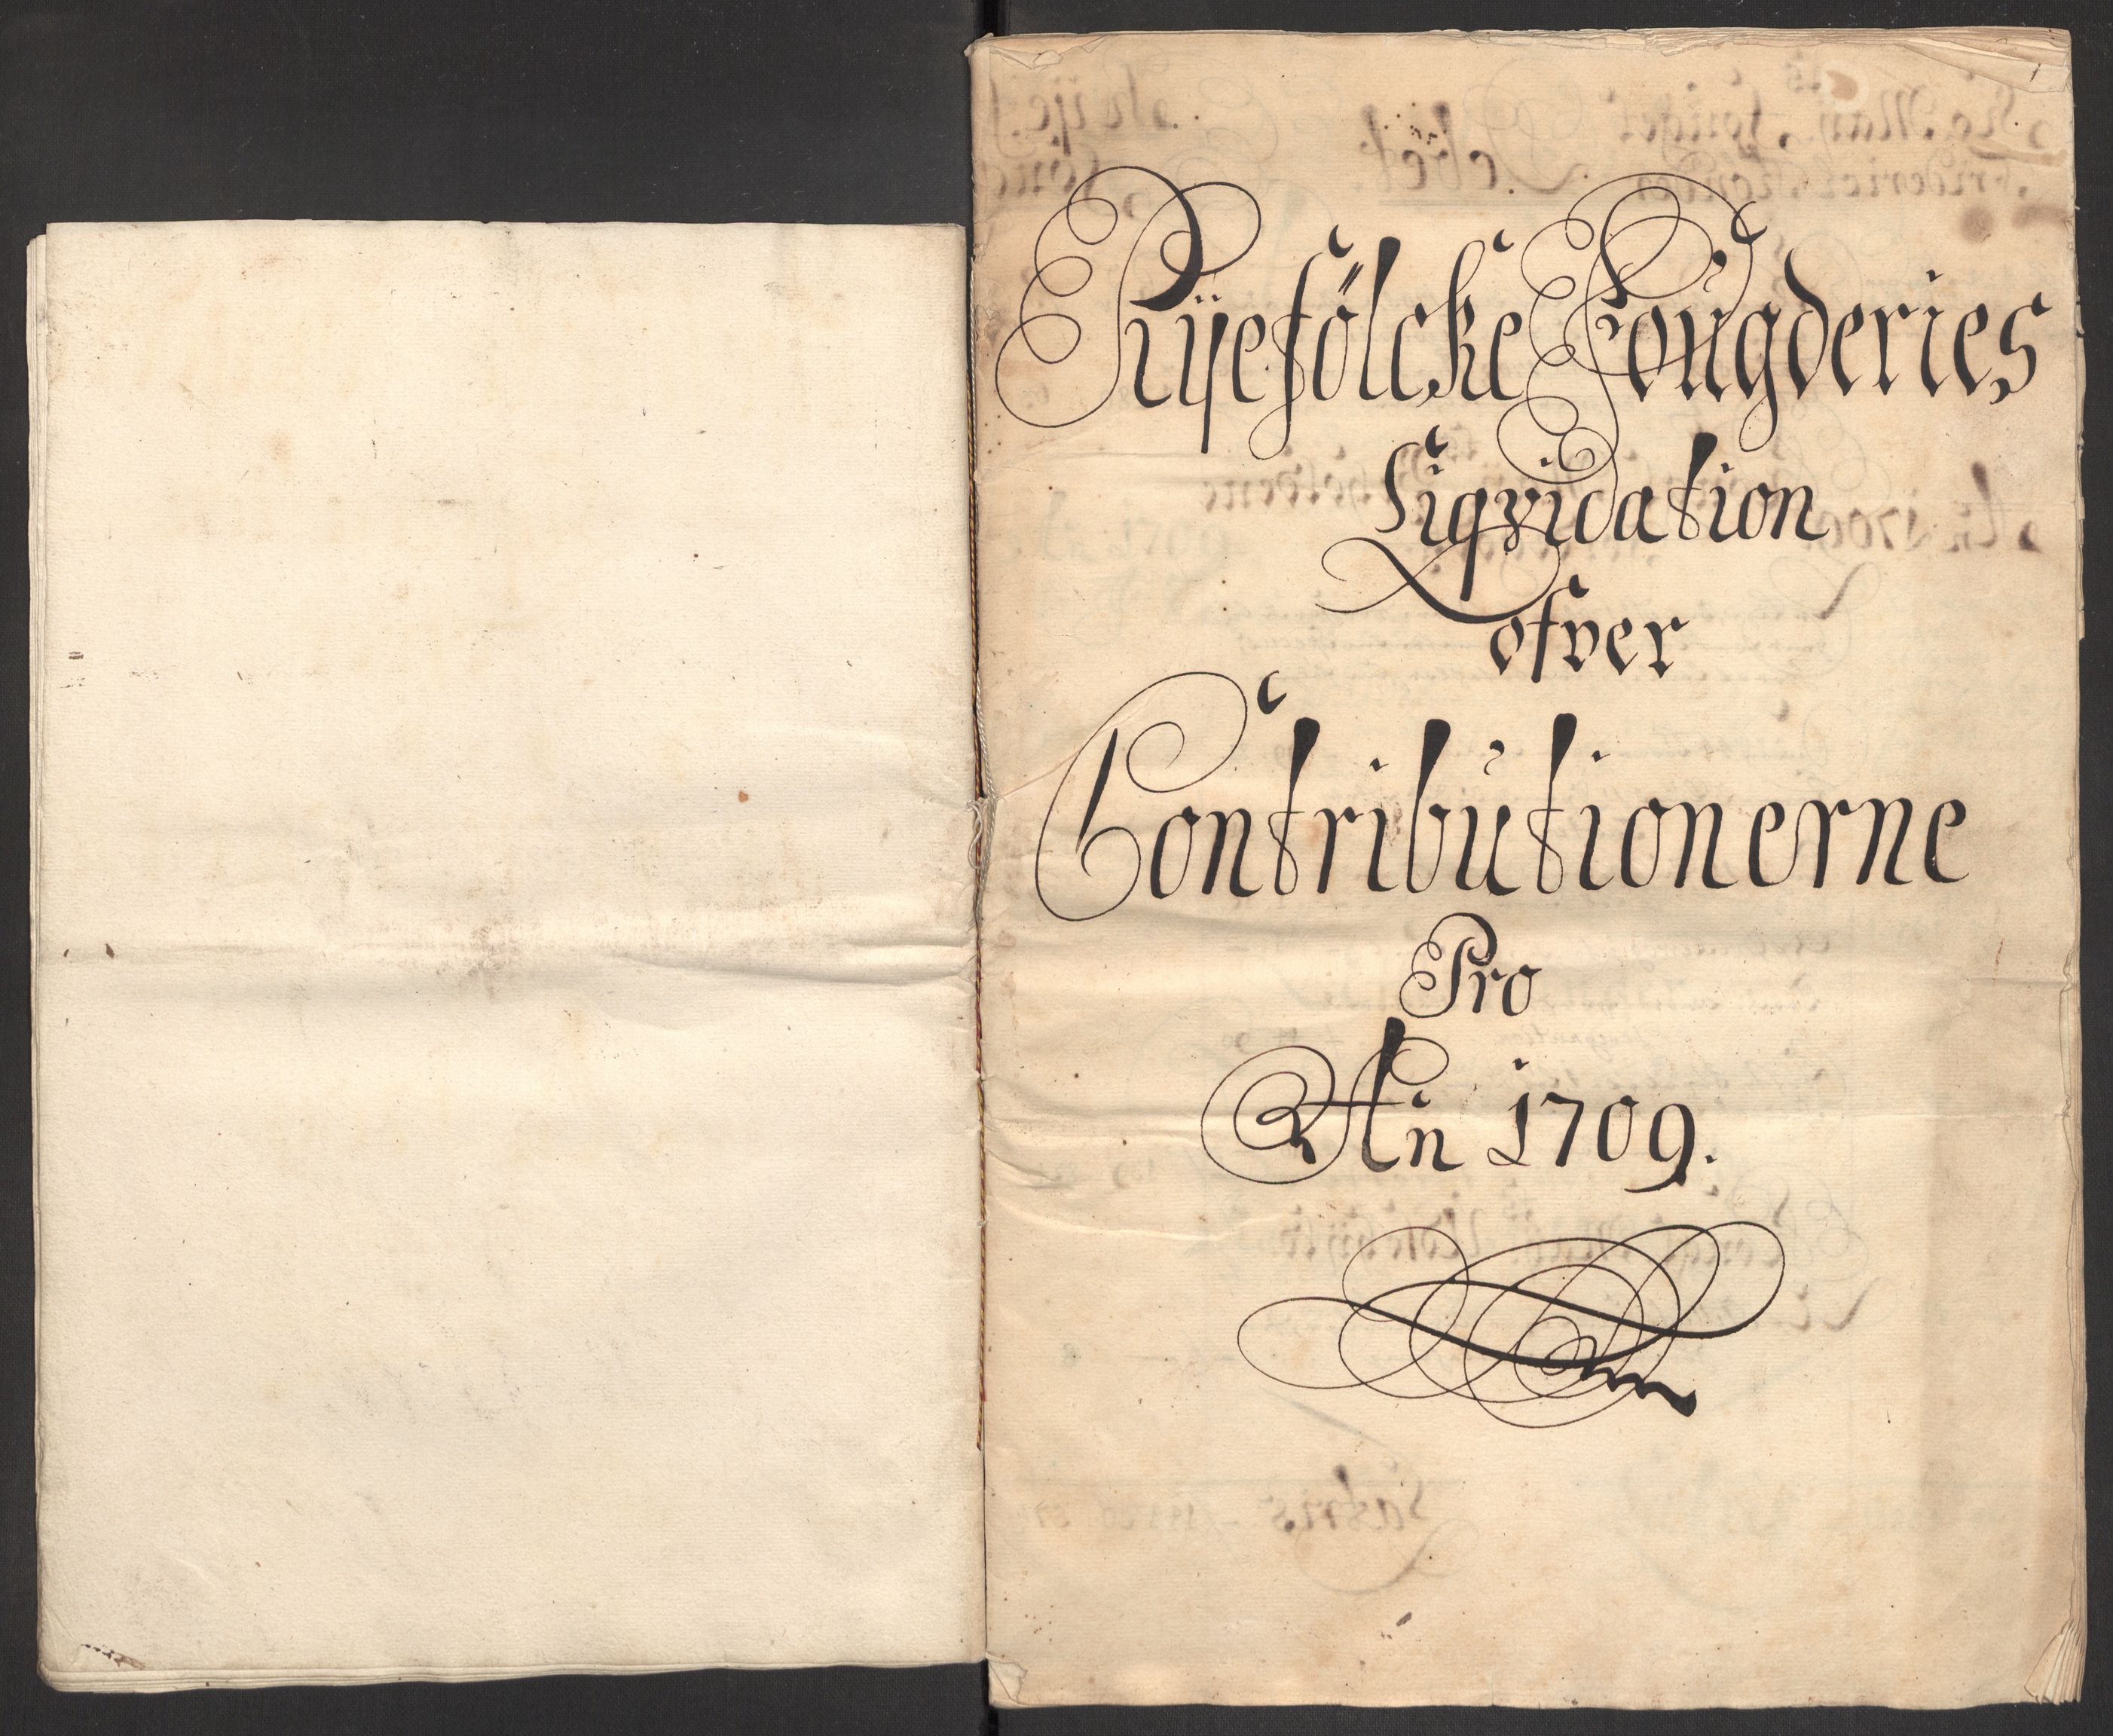 Rÿefölcke Fougderies
Liqvidation
ofver
Contributionerne
Pro
An 1709.